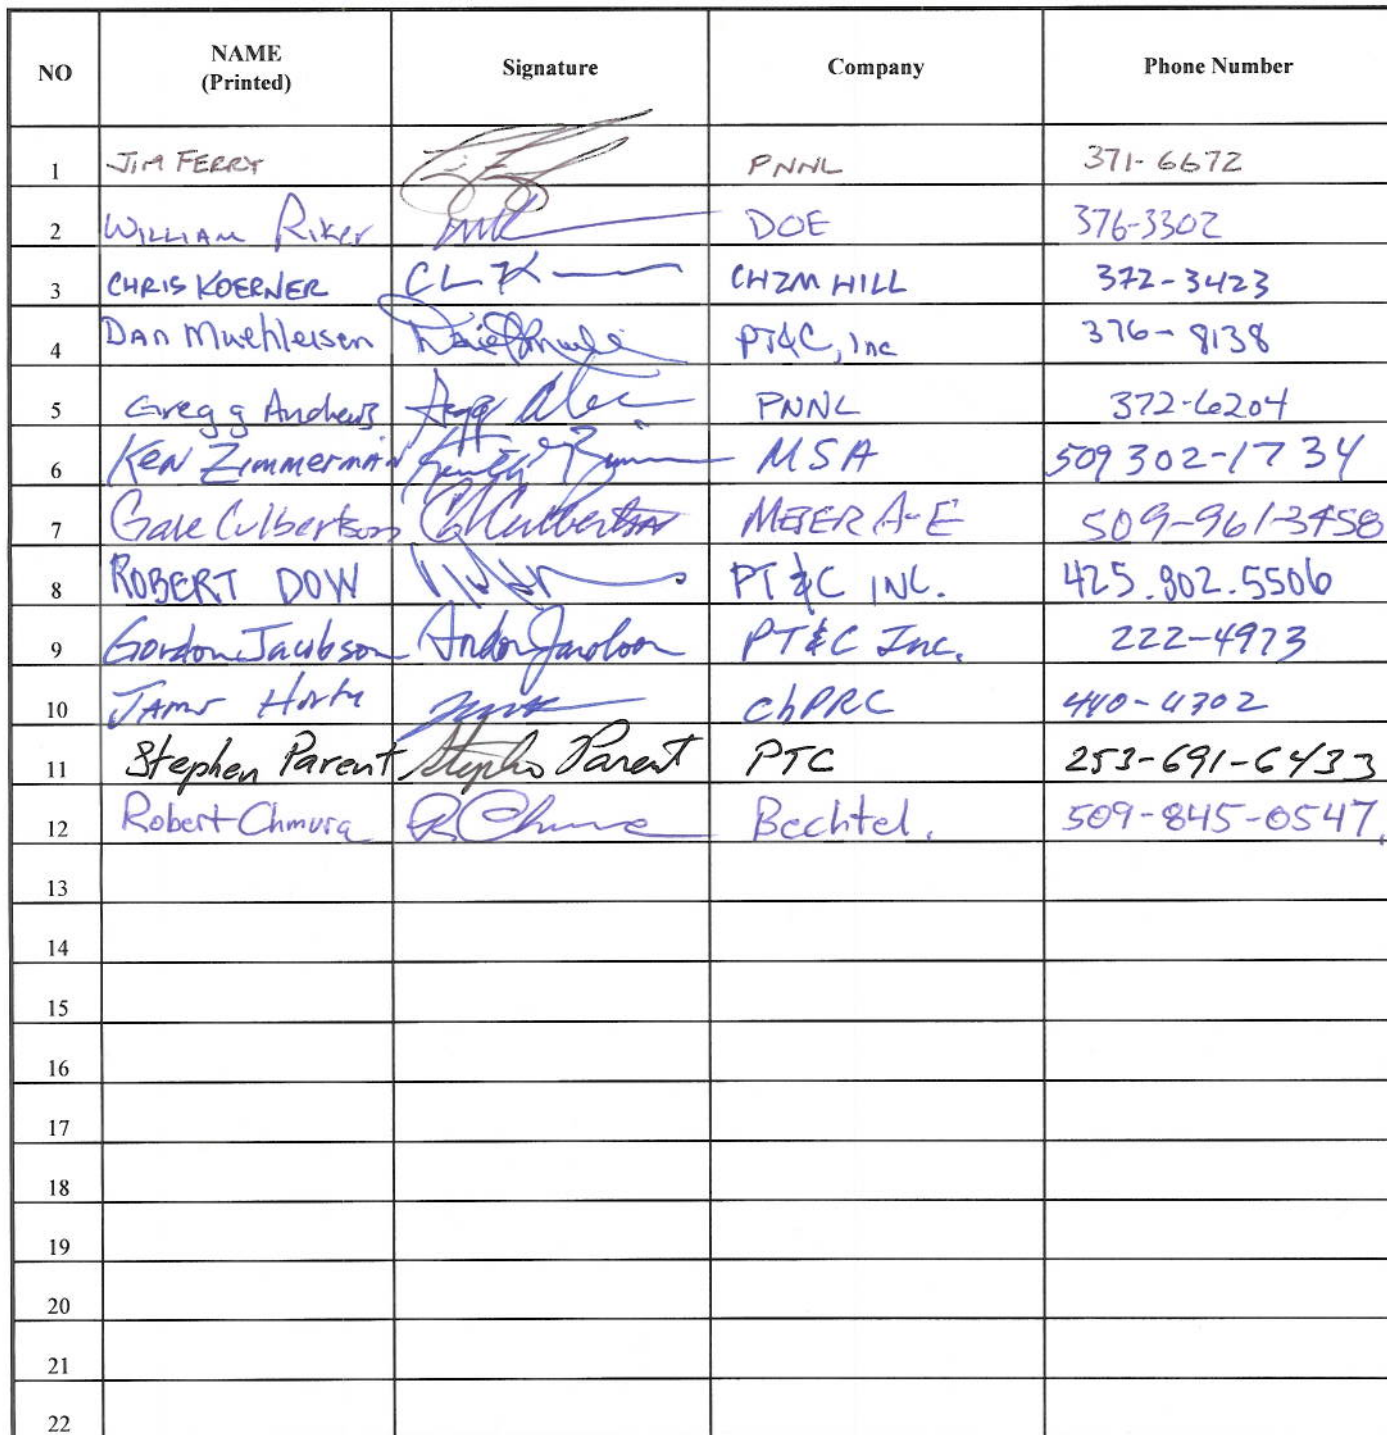 NO NAME (Printed) Signature Company Phone Number
1 JIM FERRY PNNL 371-6672
2 WILLIAM Riker DOE 376-3302
3 CHRIS KOERNER CLK CH2M HILL 372-3423
4 DAN Muehleisen PT&C, Inc 376-8138
5 Gregg Andrews PNNL 372-6204
6 Ken Zimmerman MSA 509 302-1734
7 Gale Culbertson MEIER A-E 509-961-3458
8 ROBERT DOW PT&C INC. 425.802.5506
9 Gordon Jacobson PT&C Inc. 222-4973
10 chPRC 440-4302
11 Stephen Parent Stephen Parent PTC 253-691-6433
12 Robert Chmura Bechtel. 509-845-0547.
13
14
15
16
17
18
19
20
21
22